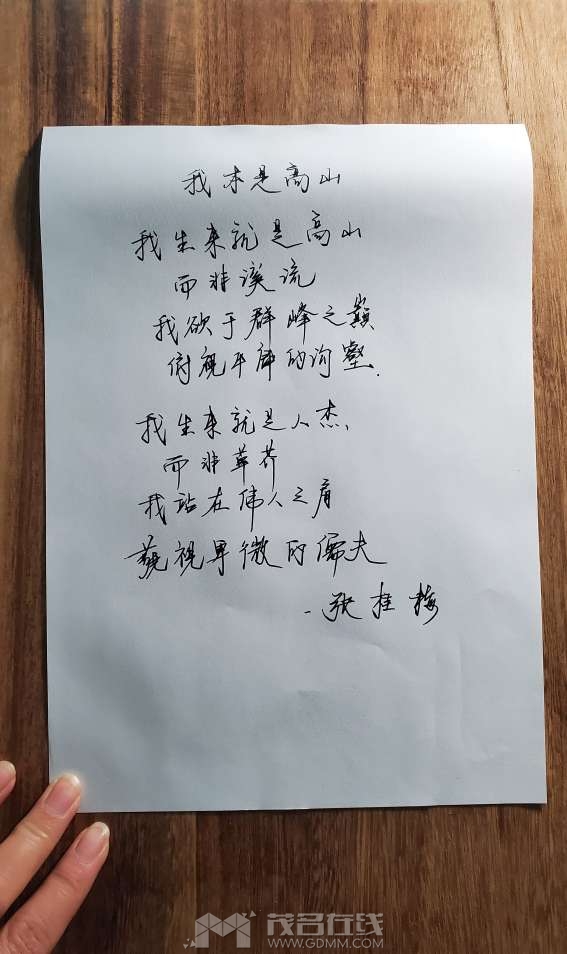 我本是高山
我生来就是高山
而非溪流
我欲于群峰之巅
俯视平庸的沟壑.
我生来就是人杰,
而非草芥
我站在伟人之肩
藐视卑微的懦夫
-张桂梅
茂名在线
WWW.GDMM.COM